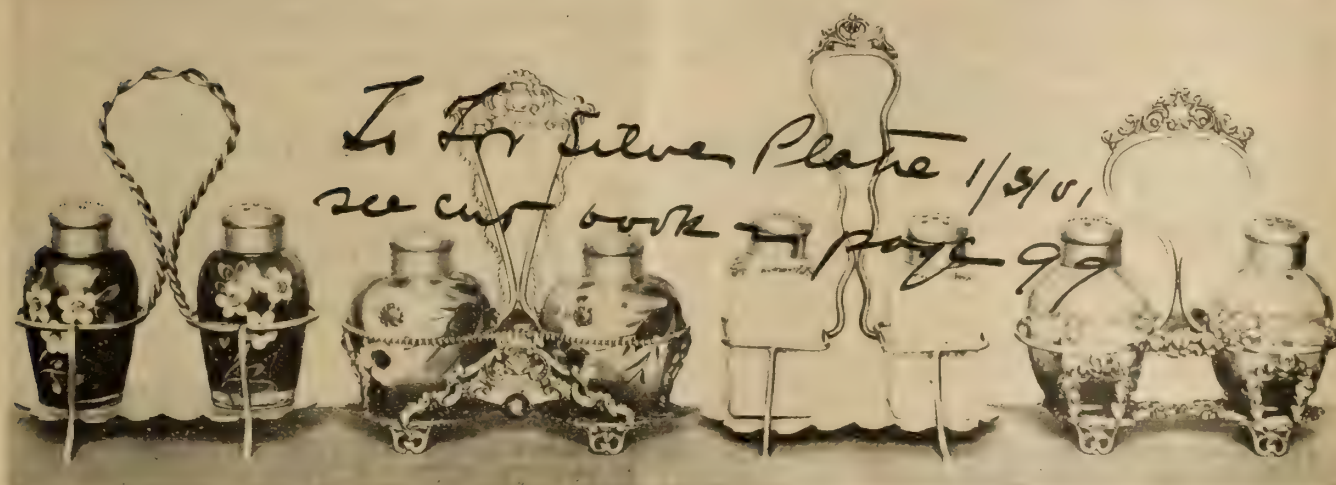 Silver Plate 1/3/01
see cut book - page 99